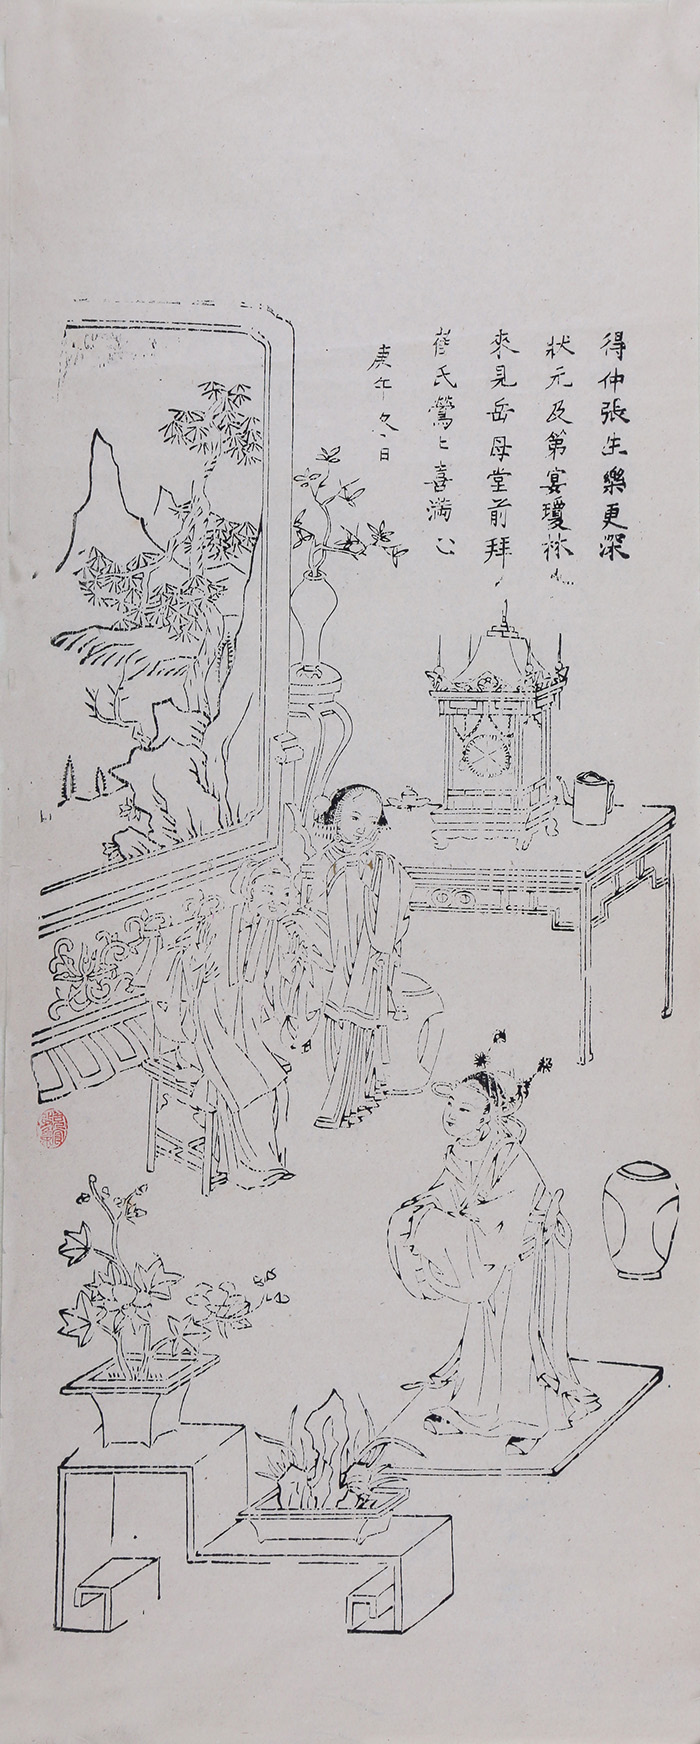 得仲張生樂更深
狀元及第宴瓊林
來見岳母堂前拜
崔氏鶯〻喜滿心
庚午冬日